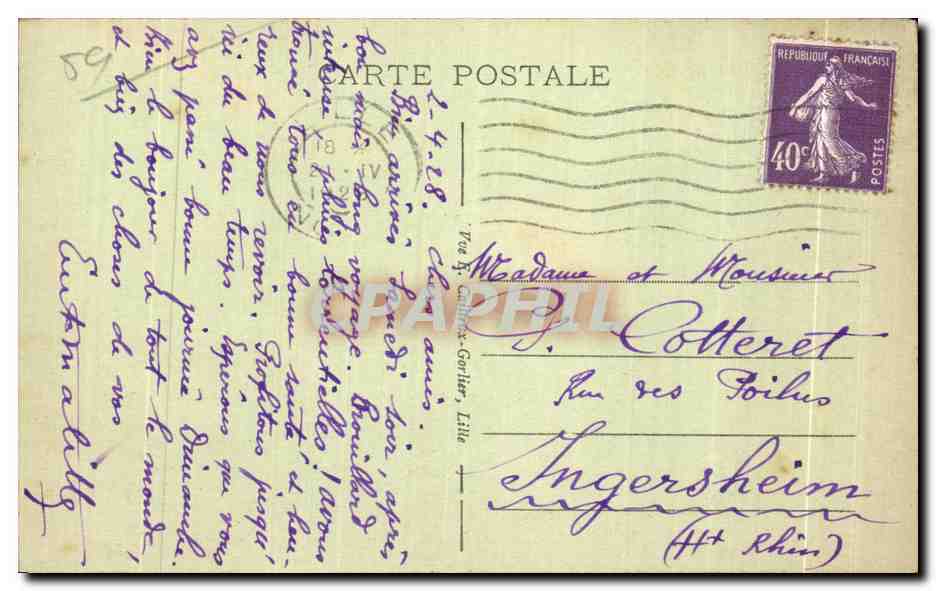 59
CARTE POSTALE
REPUBLIQUE FRANÇAISE
40c
POSTES
LILLE
18
2 · IV
28
2-4-28.
Chers amis.
Bien arrivés Samedi soir, après
bon mais long voyage. Brouillard
intense, pluies torrentielles! avons
trouvé tous en bonne santé et heu-
reux de nous revoir. Profitons jusqu'
ici du beau temps. Espérons que vous
avez passé bonne journée Dimanche.
bien le bonjour de tout le monde,
et bien des choses de vos
Vve R. Cailteux-Gorlier, Lille
CPAPHIL
Madame et Monsieur
G. Cotteret
Rue des Poilus
Ingersheim
(Ht Rhin)